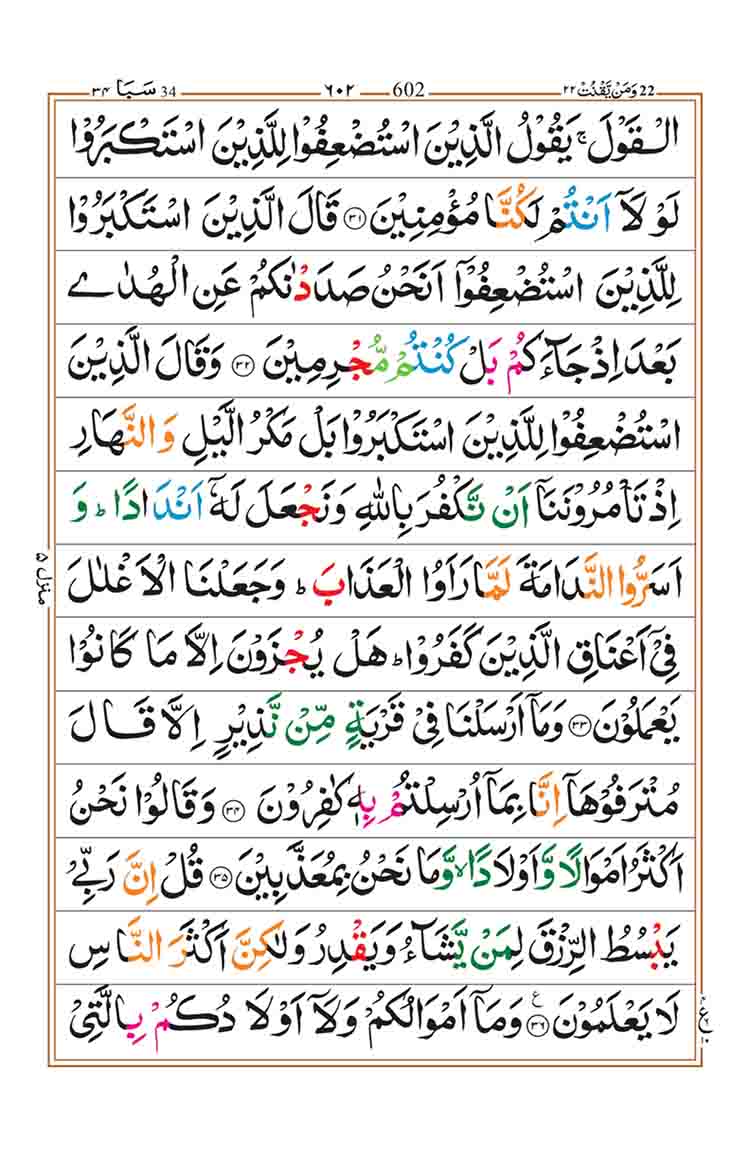 ٣٤ سَبَا 34 ٦٠٢ 602 ٢٢ وَمَنْ يَّقْنُتْ 22
الْقَوْلَ ۚ يَقُوْلُ الَّذِيْنَ اسْتُضْعِفُوْا لِلَّذِيْنَ اسْتَكْبَرُوْا
لَوْ لَاۤ اَنْتُمْ لَكُنَّا مُؤْمِنِيْنَ ۝٣١ قَالَ الَّذِيْنَ اسْتَكْبَرُوْا
لِلَّذِيْنَ اسْتُضْعِفُوْۤا اَنَحْنُ صَدَدْنٰكُمْ عَنِ الْهُدٰى
بَعْدَ اِذْ جَآءَكُمْ بَلْ كُنْتُمْ مُّجْرِمِيْنَ ۝٣٢ وَقَالَ الَّذِيْنَ
اسْتُضْعِفُوْا لِلَّذِيْنَ اسْتَكْبَرُوْا بَلْ مَكْرُ الَّيْلِ وَالنَّهَارِ
اِذْ تَاْمُرُوْنَنَاۤ اَنْ نَّكْفُرَ بِاللّٰهِ وَنَجْعَلَ لَهٗۤ اَنْدَادًا ؕ وَ
اَسَرُّوا النَّدَامَةَ لَمَّا رَاَوُا الْعَذَابَ ؕ وَجَعَلْنَا الْاَغْلٰلَ
فِيْۤ اَعْنَاقِ الَّذِيْنَ كَفَرُوْا ؕ هَلْ يُجْزَوْنَ اِلَّا مَا كَانُوْا
يَعْمَلُوْنَ ۝٣٣ وَمَاۤ اَرْسَلْنَا فِيْ قَرْيَةٍ مِّنْ نَّذِيْرٍ اِلَّا قَالَ
مُتْرَفُوْهَاۤ اِنَّا بِمَاۤ اُرْسِلْتُمْ بِهٖ كٰفِرُوْنَ ۝٣٤ وَقَالُوْا نَحْنُ
اَكْثَرُ اَمْوَالًا وَّاَوْلَادًا ۙ وَّمَا نَحْنُ بِمُعَذَّبِيْنَ ۝٣٥ قُلْ اِنَّ رَبِّيْ
يَبْسُطُ الرِّزْقَ لِمَنْ يَّشَآءُ وَيَقْدِرُ وَلٰكِنَّ اَكْثَرَ النَّاسِ
لَا يَعْلَمُوْنَ ۝٣٦ ع وَمَاۤ اَمْوَالُكُمْ وَلَاۤ اَوْلَادُكُمْ بِالَّتِيْ
منزل ٥